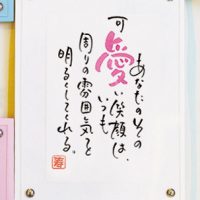 あなたのその
可愛い笑顔は、
いつも
周りの雰囲気を
明るくしてくれる。